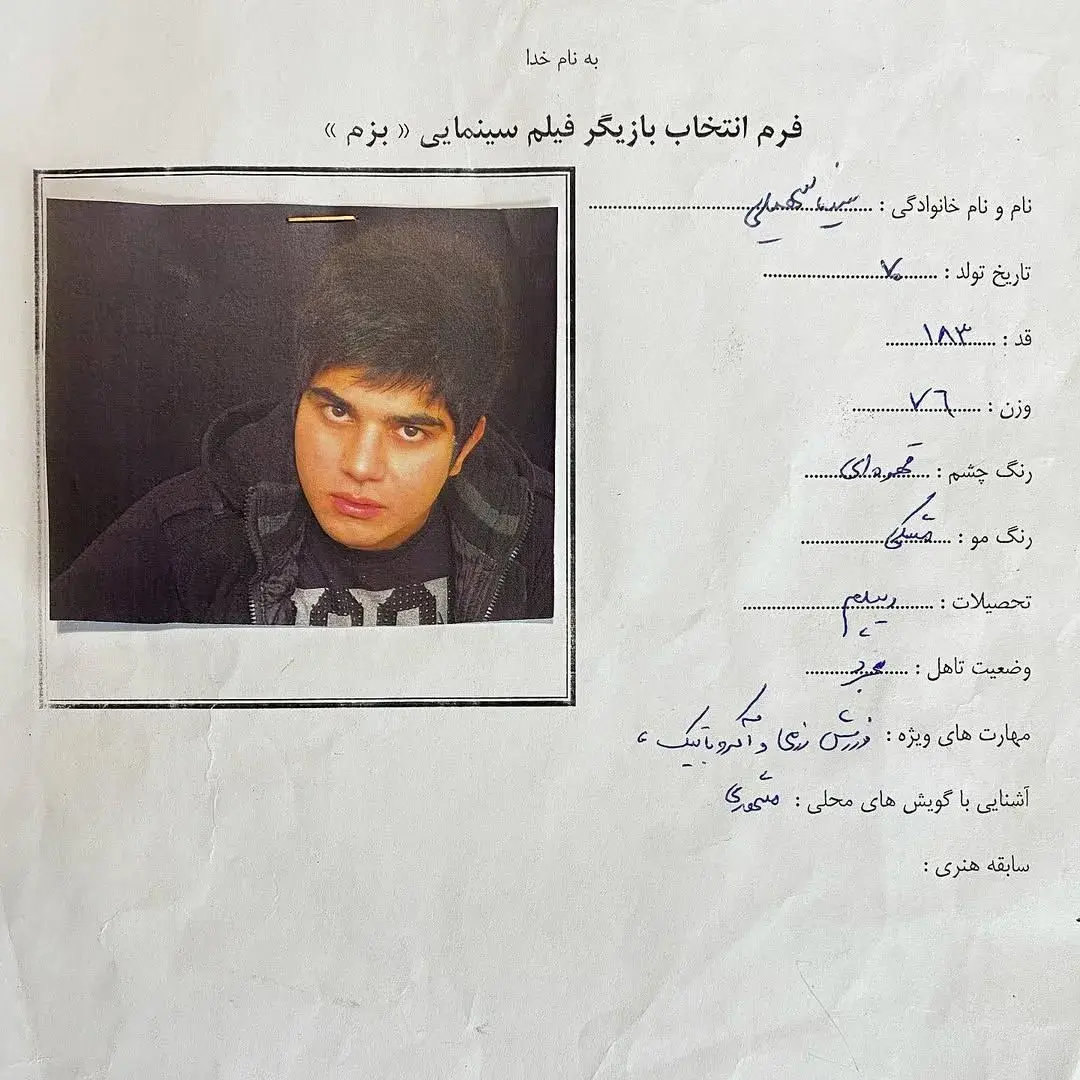 به نام خدا
فرم انتخاب بازیگر فیلم سینمایی « بزم »
نام و نام خانوادگی : سینا سهیلی
تاریخ تولد : ۷۰
قد : ۱۸۳
وزن : ۷۶
رنگ چشم : قهوه ای
رنگ مو : مشکی
تحصیلات : دیپلم
وضعیت تاهل : مجرد
مهارت های ویژه : ورزش رزمی و آکروباتیک
آشنایی با گویش های محلی :
سابقه هنری :